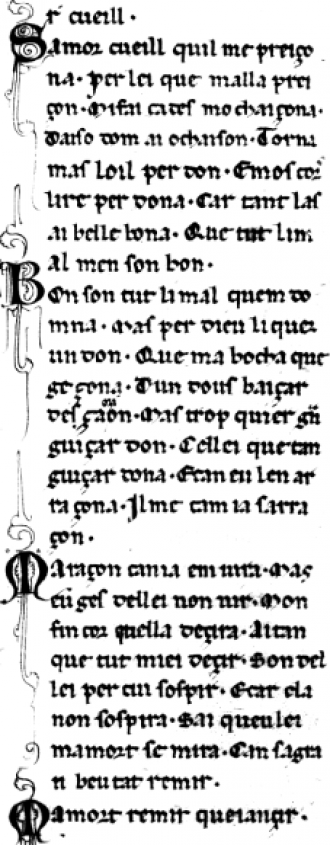 r cueill ·
Samor cueill quil me preiço
na · per lei que malla prei
çon · Mi fai caves mochaiçona ·
Daiso dom ai ochaison · Torna
mas loil per don · Emos cor
lire per dona · Car tant las
ai belle bona · Que tut lim
al men son bon ·
Bon son tut li mal quem do
mna · Mas per dieu li quer
un don · Que ma bocha que
ge çona · Dun dous baiçar
des çaon · Mas trop quier gn
guiçar don · Cellei que tan
guiçar dona · Etan eu len ar
ra çona · Il me tam ia sarra
çon ·
Maraçon tan ia em vira · Mas
eu ges dellei non vir · Mon
fin cor quella deçira · Aitan
que tut miei deçir · Son del
lei per cui sospir · Ecar ela
non sospira · Sai queu lei
ma mort se mira · Can sa gra
n beutat remir ·
Mamort remir queiançir ·